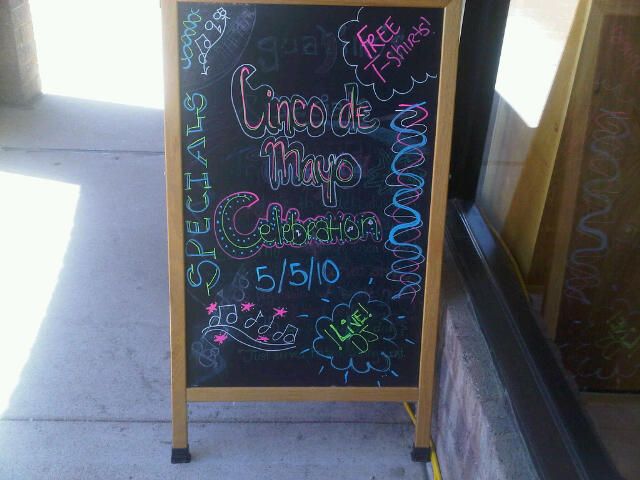 FREE
T-SHIRTS!
SPECIALS
Cinco de
Mayo
Celebration
5/5/10
!LIVE!
DJ